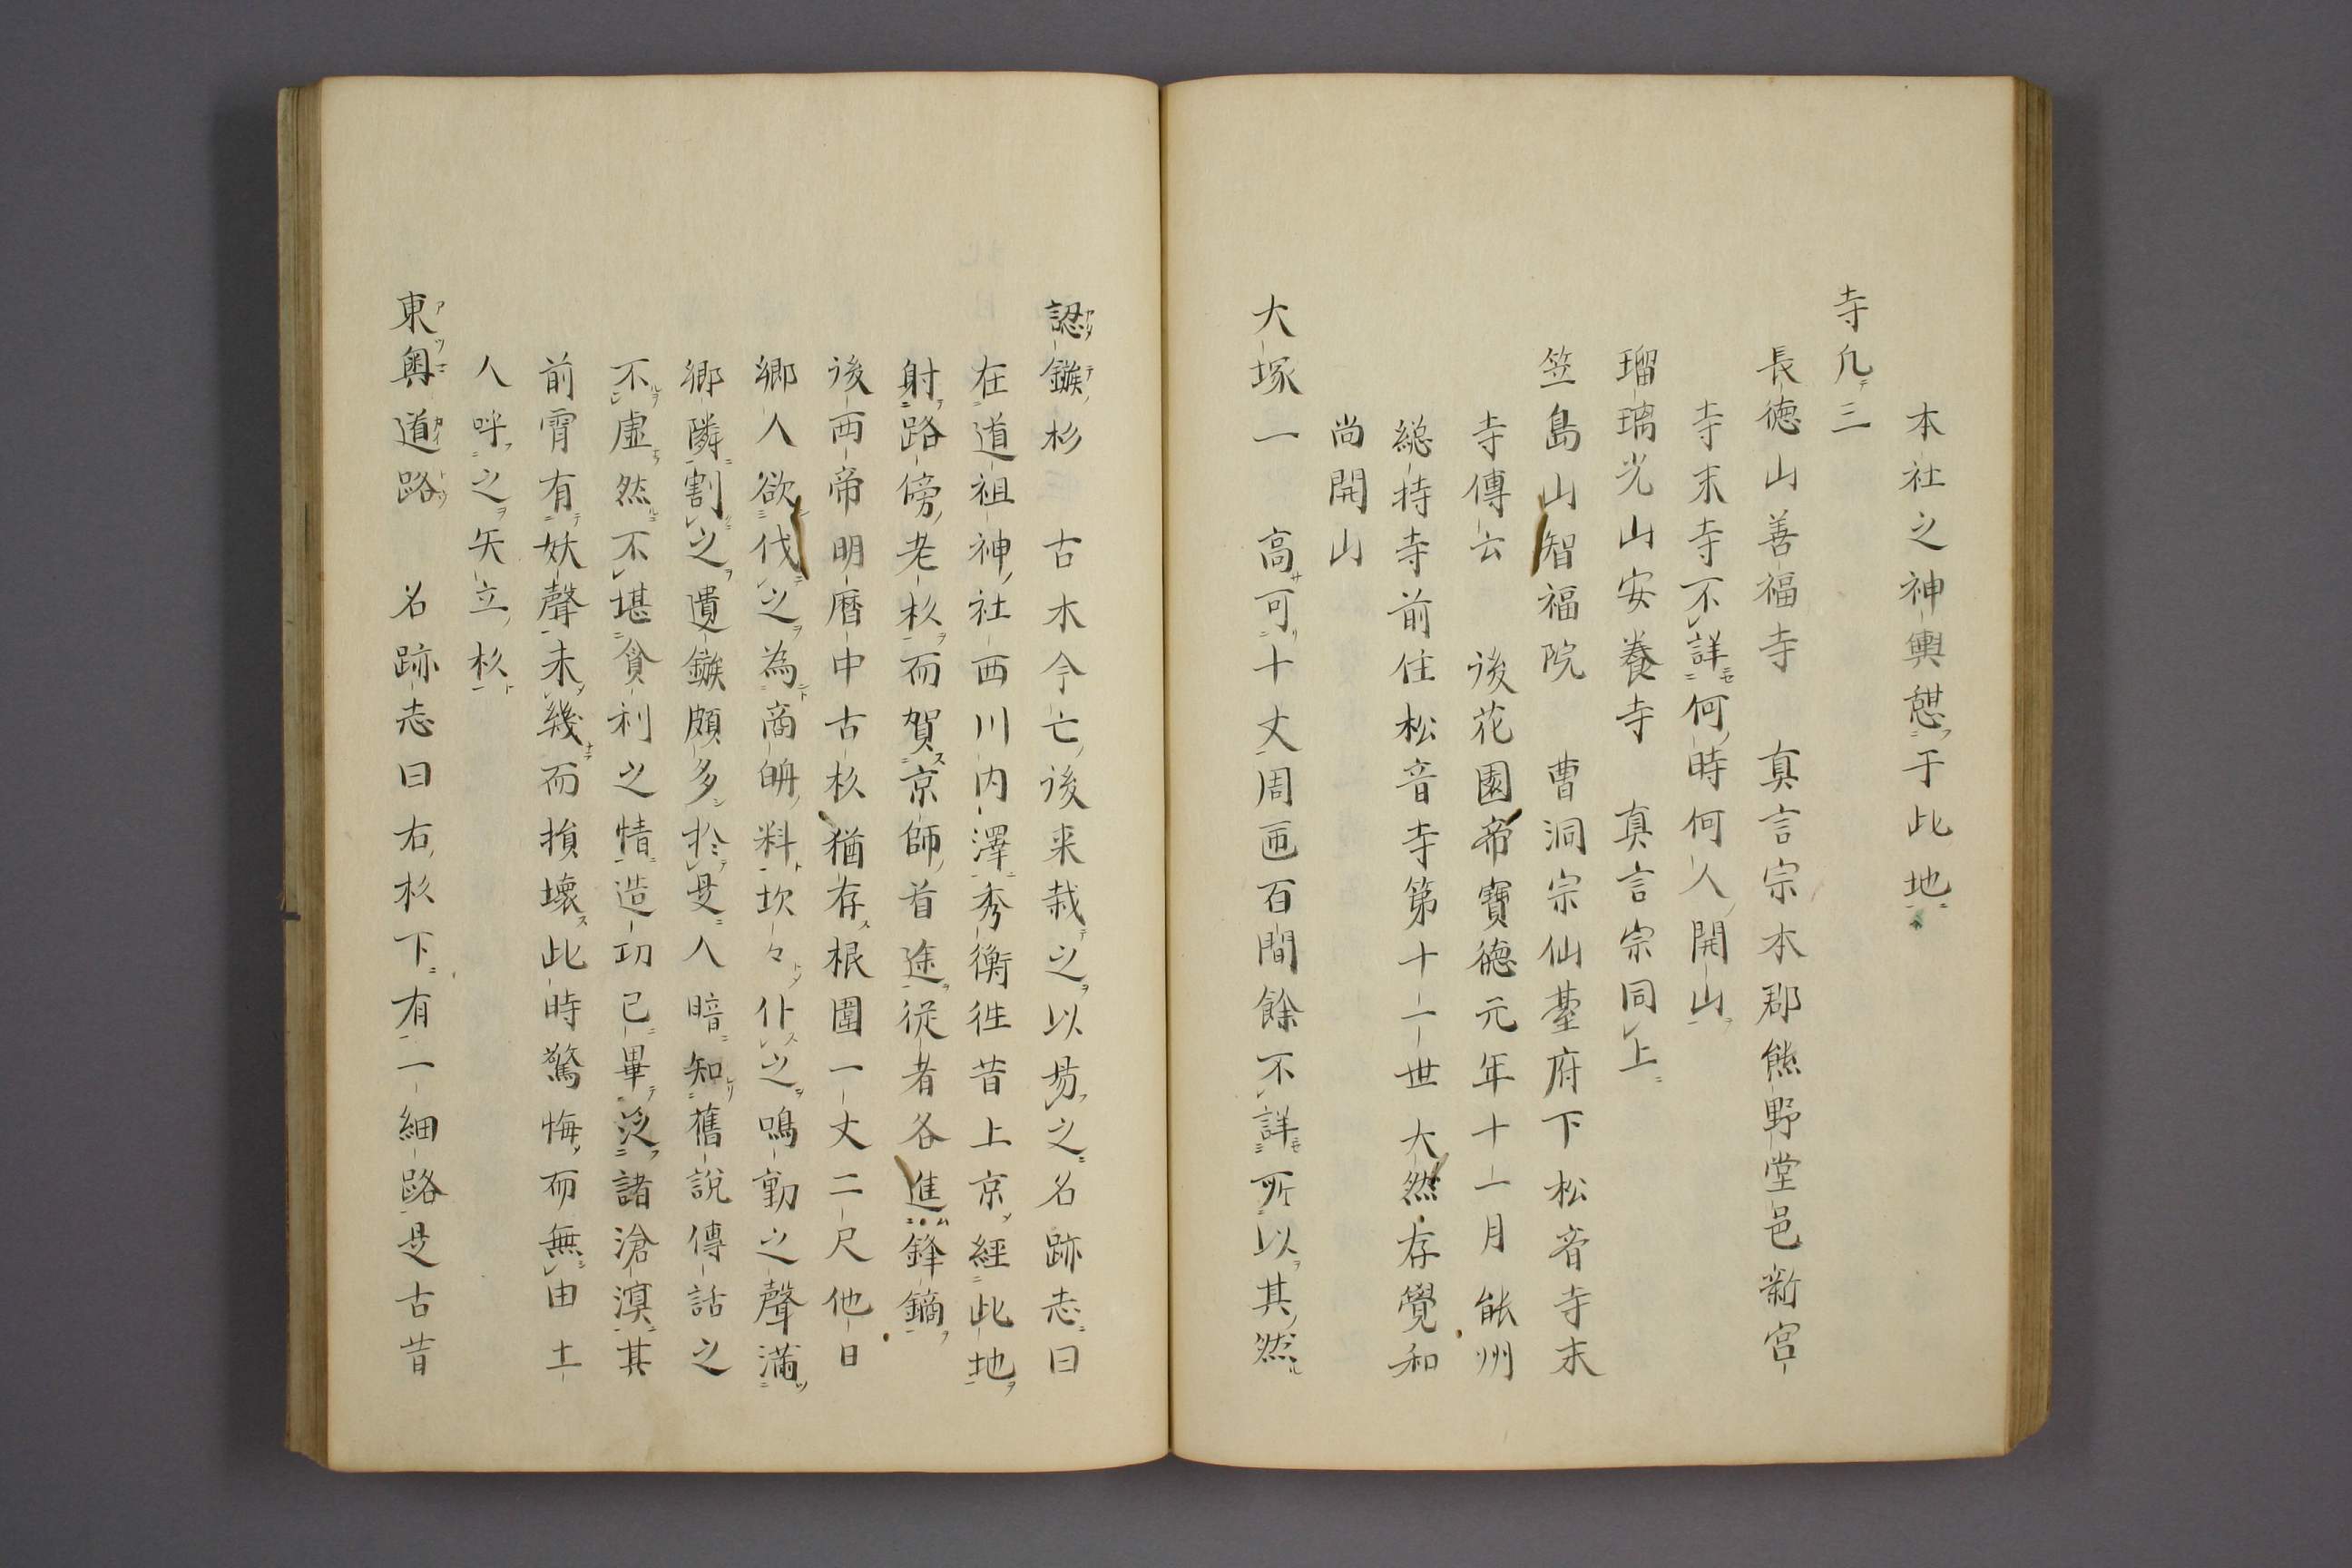 本社之神輿憇于此地
寺凢三
長徳山善福寺　真言宗本郡熊野堂邑新宮
寺末寺不詳何時何人開山
瑠璃光山安養寺　真言宗同上
笠島山智福院　曹洞宗仙臺府下松音寺末
寺傳云　後花園帝寶徳元年十一月能州
総持寺前住松音寺第十一世大然存覺和
尚開山
大塚一　高可十丈周匝百間餘不詳所以其然
認鏃杉　古木今亡後来栽之以易之名跡志曰
在道祖神社西川内澤秀衡徃昔上京經此地
射路傍老杉而賀京師首途従者各進鋒鏑
後西帝明暦中古杉猶存根圍一丈二尺他日
郷人欲伐之為商舶料坎々仆之鳴動之聲満
郷隣割之遺鏃頗多於是人暗知舊說傳話之
不虚然不堪貪利之情造功已畢泛諸滄溟其
前霄有妖聲未幾而損壞此時驚悔而無由土
人呼之矢立杉
東奥道路　名跡志曰右杉下有一細路是古昔